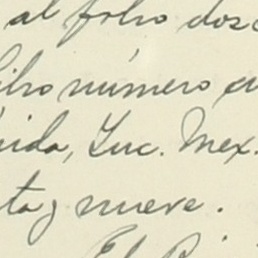 al folio dos
libro número
ida, Yuc. Mex.
ta y nueve.
El